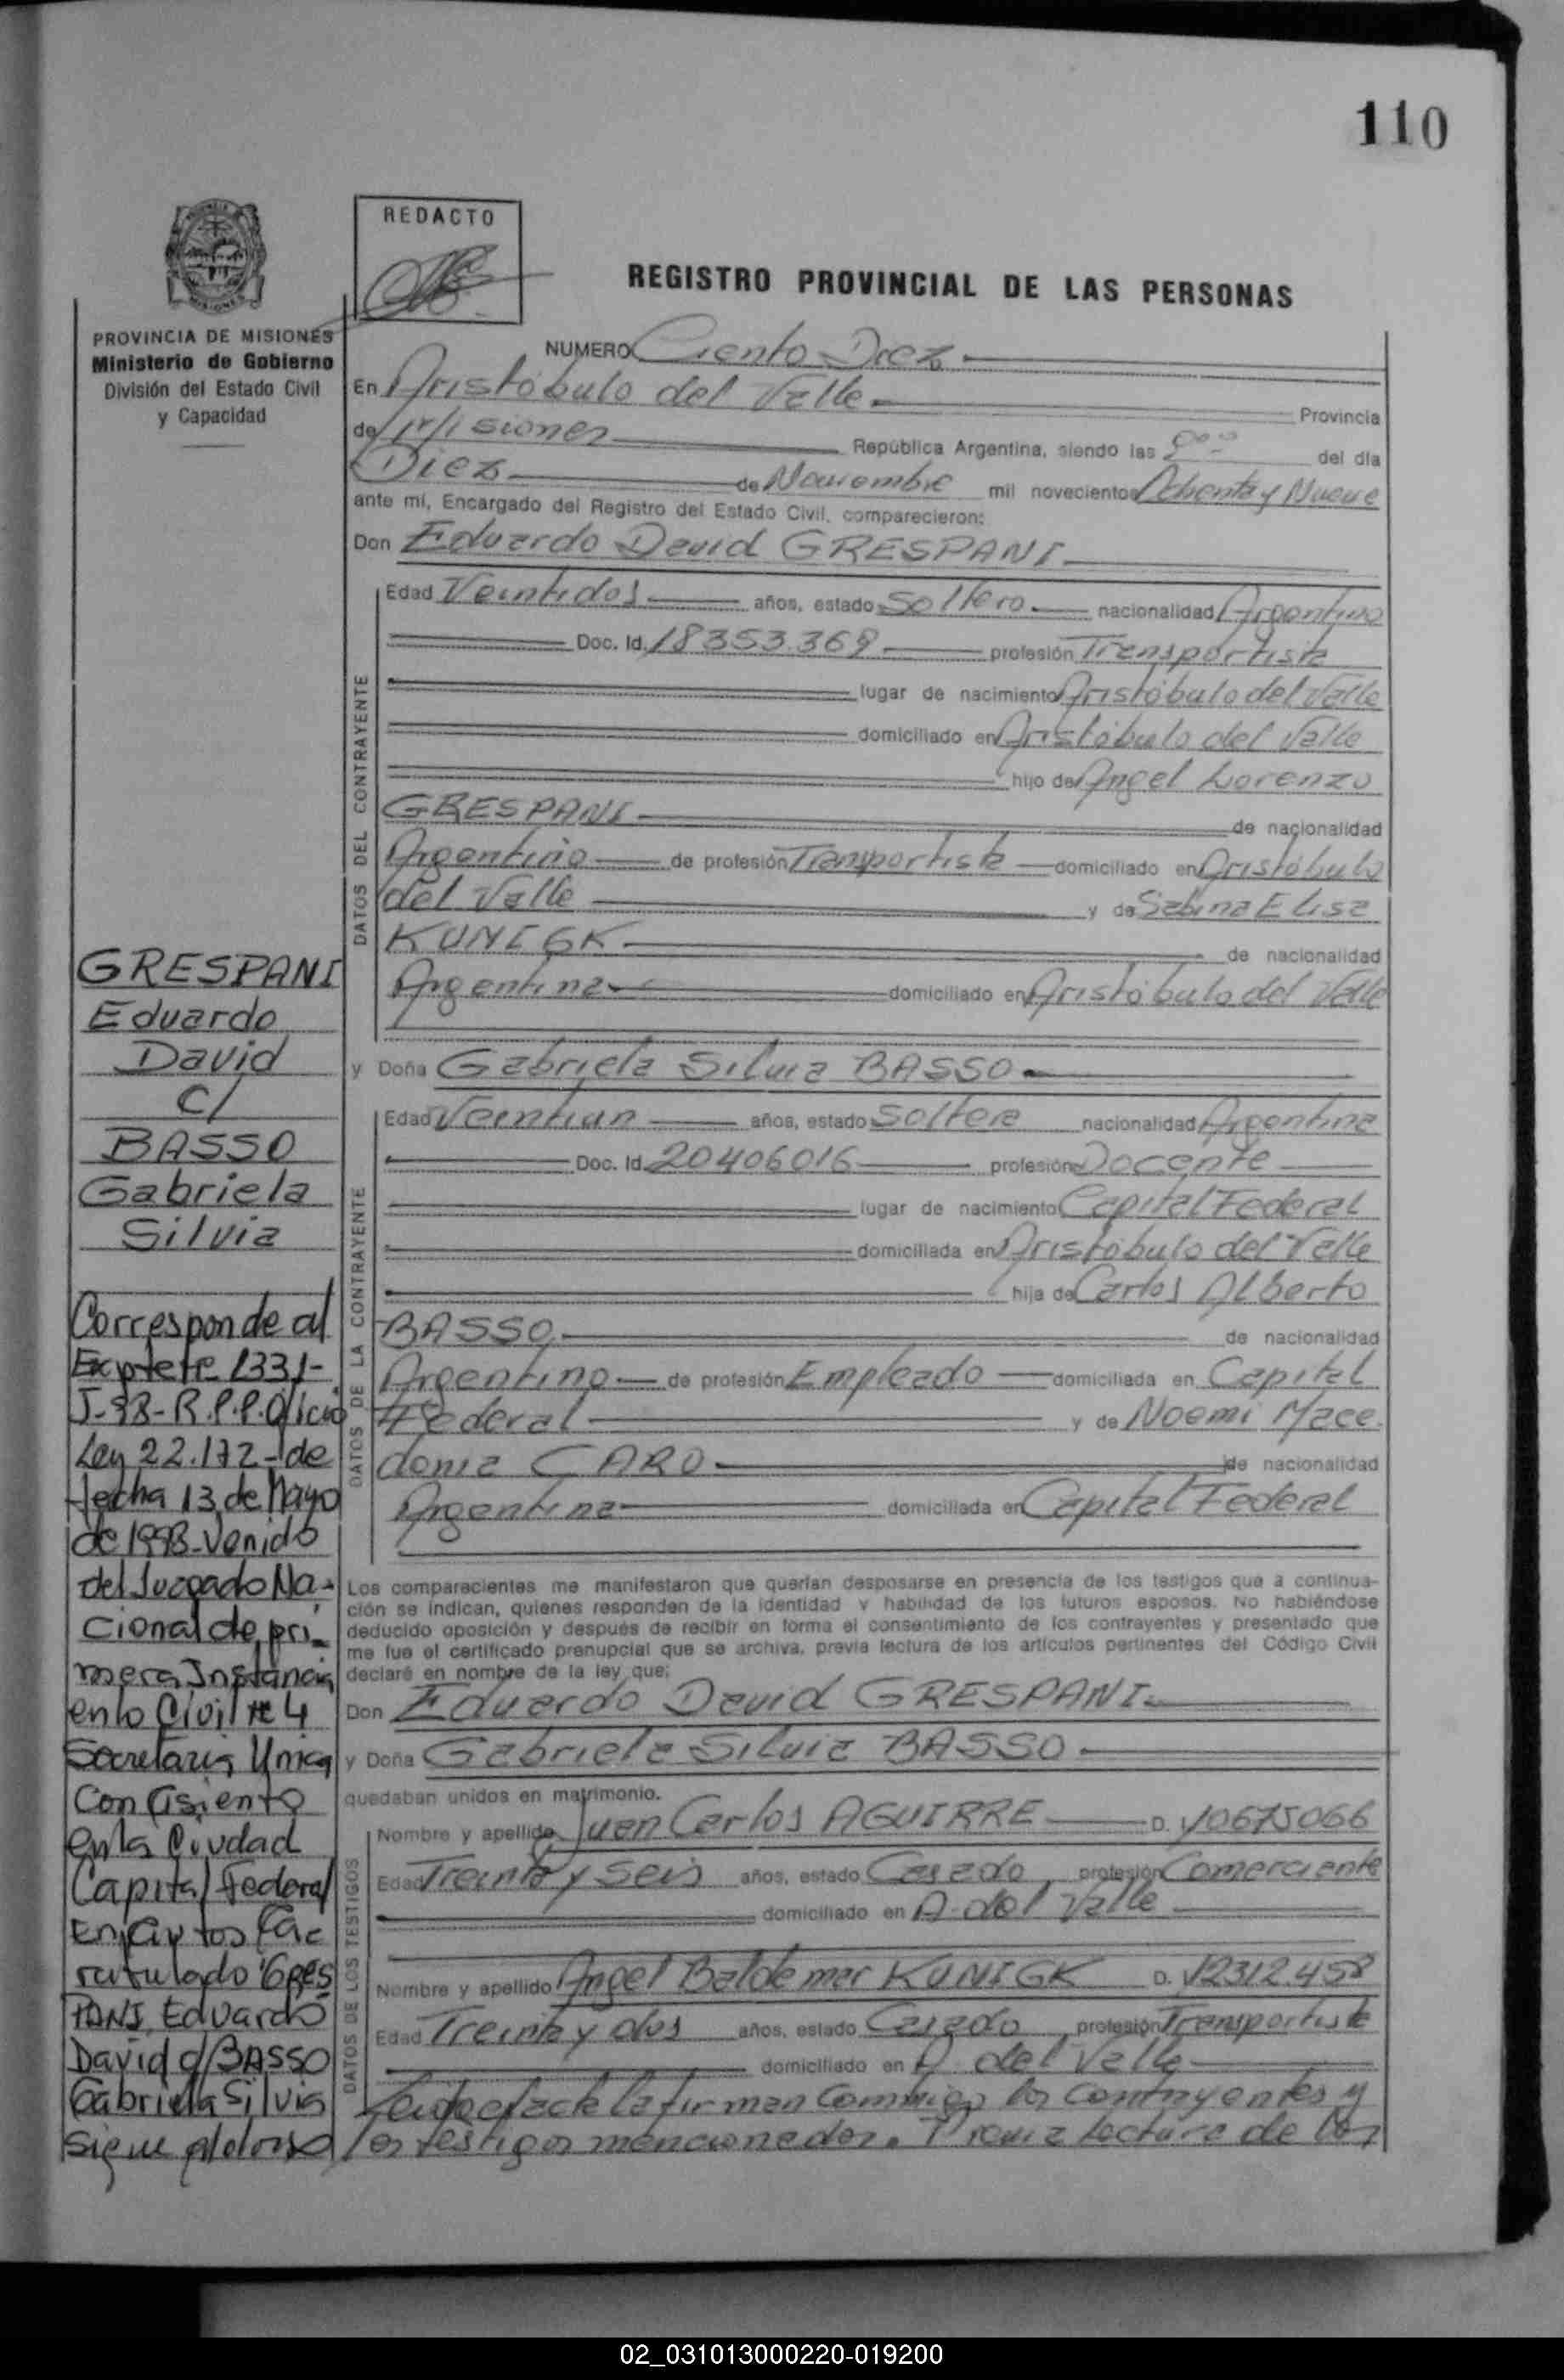 110
REDACTO
REGISTRO PROVINCIAL DE LAS PERSONAS
PROVINCIA DE MISIONES
Ministerio de Gobierno
División del Estado Civil
y Capacidad
NUMERO Ciento Diez
En Aristóbulo del Valle Provincia
de Misiones República Argentina, siendo las 8 del día
Diez de Noviembre mil novecientos Ochenta y Nueve
ante mí, Encargado del Registro del Estado Civil, comparecieron:
Don Eduardo David GRESPANI
DATOS DEL CONTRAYENTE
Edad Veintidos años, estado Soltero nacionalidad Argentina
Doc. Id. 18353.369 profesión Transportista
lugar de nacimiento Aristóbulo del Valle
domiciliado en Aristóbulo del Valle
hijo de Angel Lorenzo
GRESPANI de nacionalidad
Argentino de profesión Transportista domiciliado en Aristóbulo
del Valle y de Sabina Elisa
KUNIGK de nacionalidad
Argentina domiciliado en Aristóbulo del Valle
y Doña Gabriela Silvia BASSO
DATOS DE LA CONTRAYENTE
Edad Veintiun años, estado Soltera nacionalidad Argentina
Doc. Id. 20406016 profesión Docente
lugar de nacimiento Capital Federal
domiciliada en Aristóbulo del Valle
hija de Carlos Alberto
BASSO de nacionalidad
Argentino de profesión Empleado domiciliada en Capital
Federal y de Noemi Mace
donia CARO de nacionalidad
Argentina domiciliada en Capital Federal
Los comparecientes me manifestaron que querían desposarse en presencia de los testigos que a continua-
ción se indican, quienes responden de la identidad y habilidad de los futuros esposos. No habiéndose
deducido oposición y después de recibir en forma el consentimiento de los contrayentes y presentado que
me fue el certificado prenupcial que se archiva, previa lectura de los artículos pertinentes del Código Civil
declaré en nombre de la ley que:
Don Eduardo David GRESPANI
y Doña Gabriela Silvia BASSO
quedaban unidos en matrimonio.
DATOS DE LOS TESTIGOS
Nombre y apellido Juan Carlos AGUIRRE D. 10675066
Edad Treinta y Seis años, estado Casado profesión Comerciante
domiciliado en A. del Valle
Nombre y apellido Angel Baldemar KUNIGK D. 12312.458
Edad Treinta y dos años, estado Casado profesión Transportista
domiciliado en A. del Valle
Leida el acta la firman conmigo los contrayentes y
los testigos mencionados. Previa lectura de los
GRESPANI
Eduardo
David
C/
BASSO
Gabriela
Silvia
Corresponde al
Expte Nº 1331-
J-98-R.P.P. Oficio
Ley 22.172- de
fecha 13 de Mayo
de 1998- Venido
del Juzgado Na-
cional de pri-
mera Instancia
en lo Civil Nº 4
Secretaria Unica
Con Asiento
en la Ciudad
Capital Federal
En Autos Car
ratulado "GRES
PANI, Eduardo
David c/BASSO
Gabriela Silvia
Sigue al dorso
02_031013000220-019200